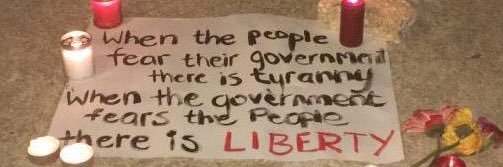 When the people
fear their government
there is tyranny
When the government
fears the People
there is LIBERTY